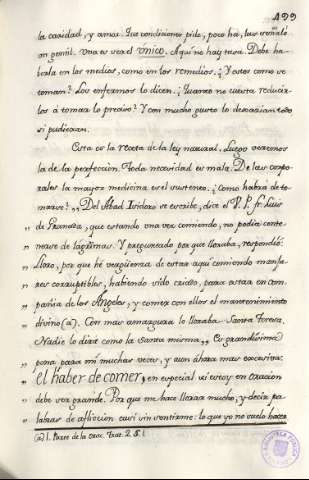 499
la caridad, y amor. Sus condiciones pide, poco ha, las señaló
un gentil. Una es ver el único. Aquí no hay tasa. Debe ha-
berla en los medios, como en los remedios. ¿Y estos como se
toman? Los enfermos lo dicen. ¿Quanto no cuesta reducir-
los á tomar lo preciso? Y con mucho gusto lo
si pudieran.
Esta es la receta de la ley natural. Luego veremos
la de la perfeccion. Toda necesidad es mala. De las corpo-
rales la mayor medicina es el sustento. ¿Como habrá de to-
marse? „ Del Abad Isidoro se escribe, dice el V. P. fr. Luis
„ de Granada, que estando una vez comiendo, no podía conte-
„ nerse de lágrimas. Y preguntado por que lloraba, respondió:
„ Lloro, por que hé vergüenza de estar aquí comiendo manja-
„ res corruptibles, habiendo sido criado, para estar en com-
„ pañia de los Angeles, y comer con ellos el mantenimiento
„ divino (a). Con mas amargura lo lloraba Santa Teresa.
„ Nadie lo dirá como la Santa misma „ Es grandísima
„ pena para mi muchas veces, y aun ahora mas excesiva:
„ el haber de comer, en especial si estoy en oracion
„ debe ser grande. Por que me hace llorar mucho, y decir pa-
„ labras de afliccion casi sin sentirme: lo que yo no suelo hacer
(a) 1. Parte de la orac. Trat. 2. § 1.